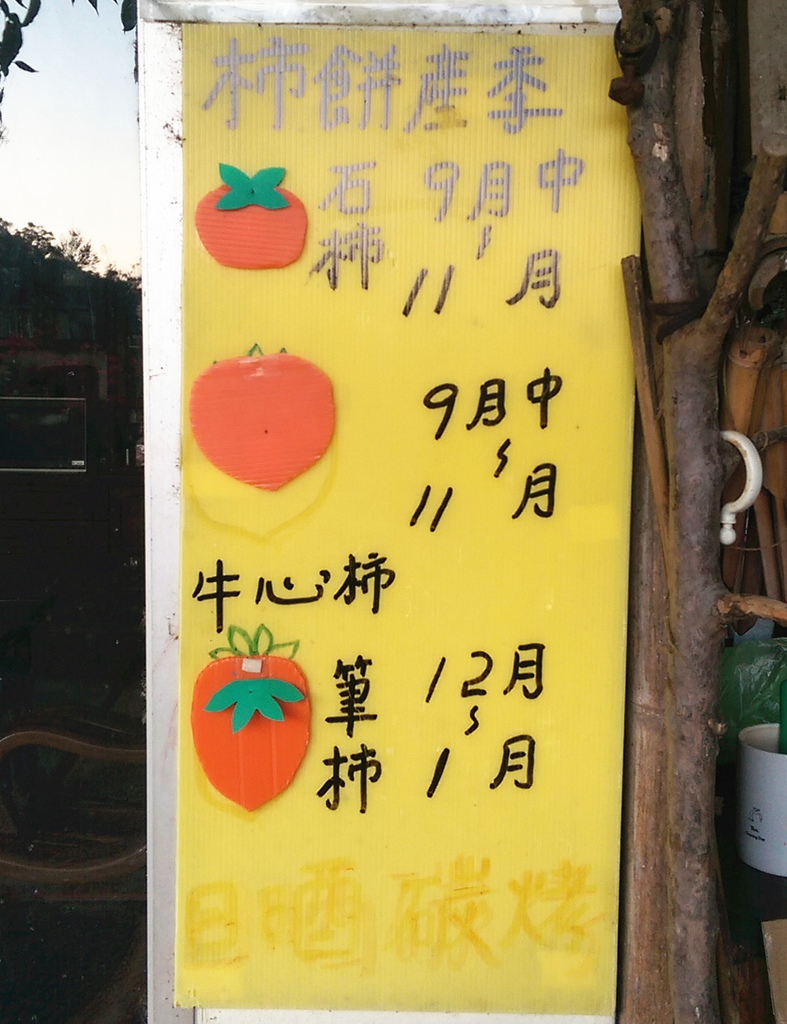 柿餅產季
石柿 9月中
~
11月
9月中
~
11月
牛心柿
筆柿 12月
~
1月
日晒 碳烤